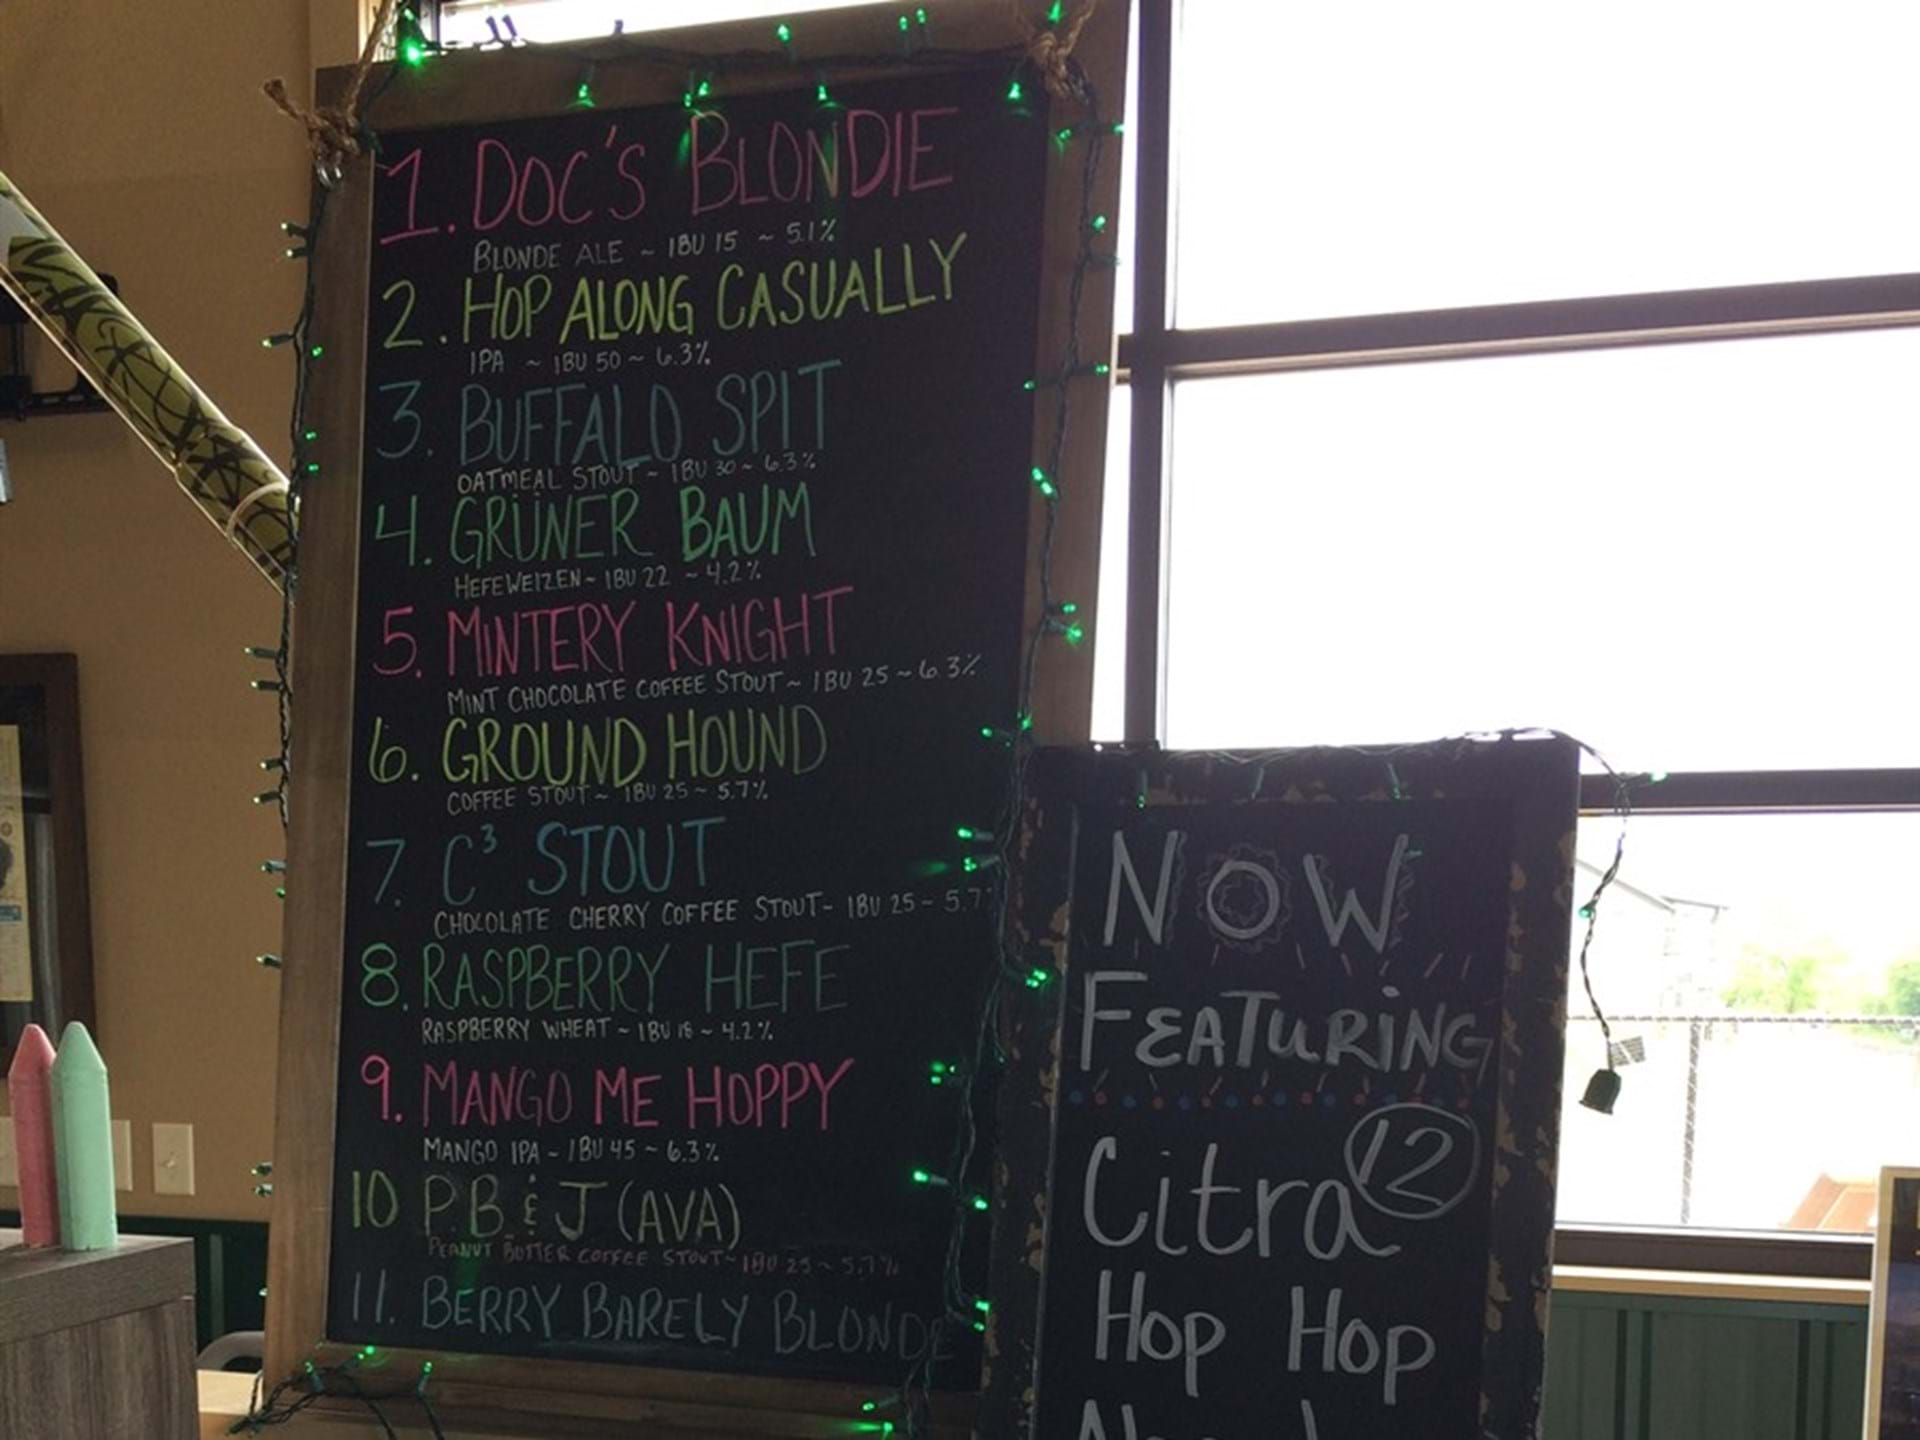 1. DOC'S BLONDIE
BLONDE ALE ~ IBU 15 ~ 5.1%
2. HOP ALONG CASUALLY
IPA ~ IBU 50 ~ 6.3%
3. BUFFALO SPIT
OATMEAL STOUT ~ IBU 30 ~ 6.3%
4. GRÜNER BAUM
HEFEWEIZEN ~ IBU 22 ~ 4.2%
5. MINTERY KNIGHT
MINT CHOCOLATE COFFEE STOUT ~ IBU 25 ~ 6.3%
6. GROUND HOUND
COFFEE STOUT ~ IBU 25 ~ 5.7%
7. C³ STOUT
CHOCOLATE CHERRY COFFEE STOUT ~ IBU 25 ~ 5.7
8. RASPBERRY HEFE
RASPBERRY WHEAT ~ IBU 18 ~ 4.2%
9. MANGO ME HOPPY
MANGO IPA ~ IBU 45 ~ 6.3%
10 P.B. & J (AVA)
PEANUT BUTTER COFFEE STOUT ~ IBU 25 ~ 5.7%
11. BERRY BARELY BLONDE
NOW
FEATURING
Citra 12
Hop Hop